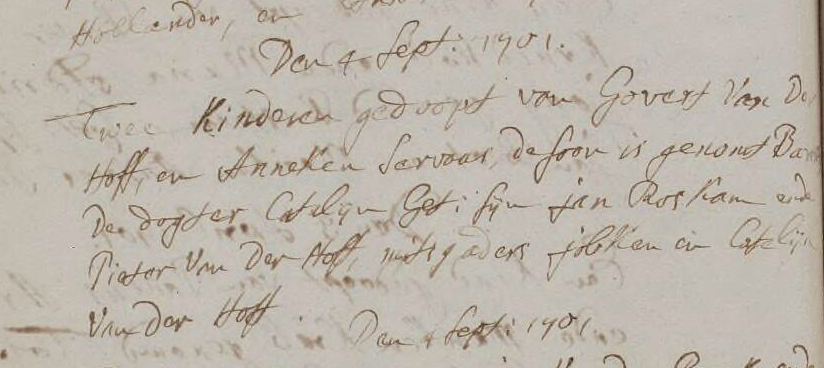 Hollander, en
Den 4 Sept: 1701.
Twee Kinderen gedoopt van Govert Van Der
Hoff, en Anneken Servaas, de soon is genomt
De dogter Catelijn Get: sijn jan Roskam ende
Pieter Van Der Hoff, mitsgaders jobken en Catelijn
Van der Hoff.
Den 4 Sept: 1701.